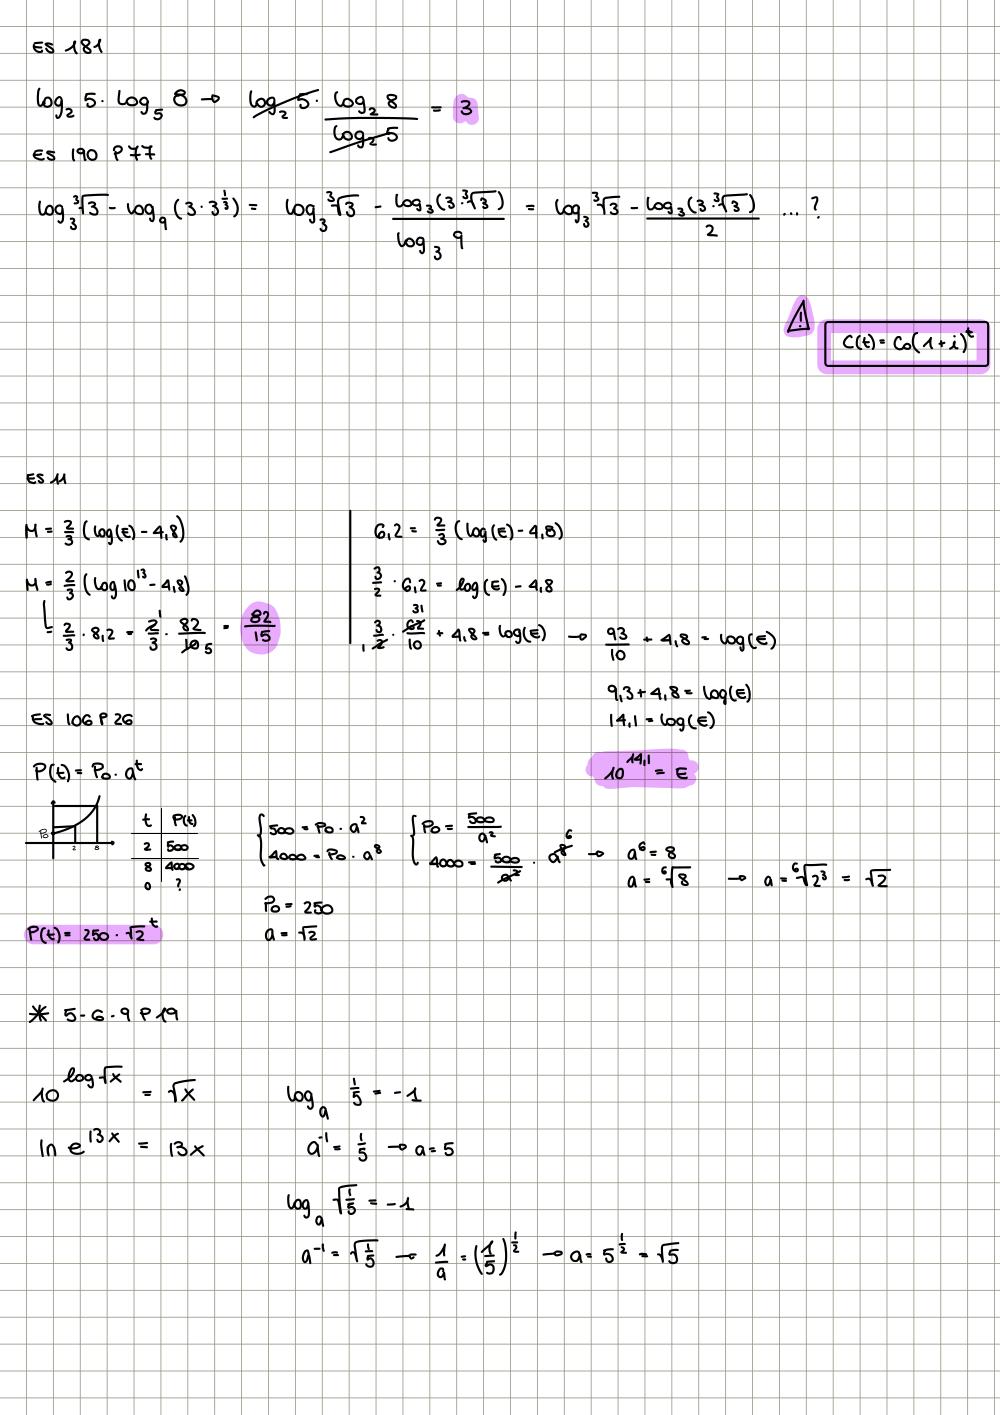 ES 181
log₂ 5 · log₅ 8 → log₂ 5 · log₂ 8 / log₂ 5 = 3
ES 190 P 77
log₃ ³√3 - log₉ (3·3^(1/3)) = log₃ ³√3 - log₃(3·³√3) / log₃ 9 = log₃ ³√3 - log₃(3·³√3) / 2 ... ?
⚠ C(t) = C₀(1+i)^t
ES 11
M = 2/3 (log(E) - 4,8)
M = 2/3 (log 10^13 - 4,8)
= 2/3 · 8,2 = 2/3 1 · 82/10 5 = 82/15
6,2 = 2/3 (log(E) - 4,8)
3/2 · 6,2 = log(E) - 4,8
3/2 1 · 62/10 31 + 4,8 = log(E) → 93/10 + 4,8 = log(E)
9,3 + 4,8 = log(E)
14,1 = log(E)
10^14,1 = E
ES 106 P 26
P(t) = P₀ · a^t
P₀ 2 8
t P(t)
2 500
8 4000
0 ?
{ 500 = P₀ · a²
4000 = P₀ · a⁸
{ P₀ = 500/a²
4000 = 500/a² · a⁸ 6 → a⁶ = 8
a = ⁶√8 → a = ⁶√2³ = √2
P₀ = 250
a = √2
P(t) = 250 · √2^t
* 5 - 6 - 9 P 19
10^(log √x) = √x
ln e^(13x) = 13x
log_a 1/5 = -1
a⁻¹ = 1/5 → a = 5
log_a √(1/5) = -1
a⁻¹ = √(1/5) → 1/a = (1/5)^(1/2) → a = 5^(1/2) = √5